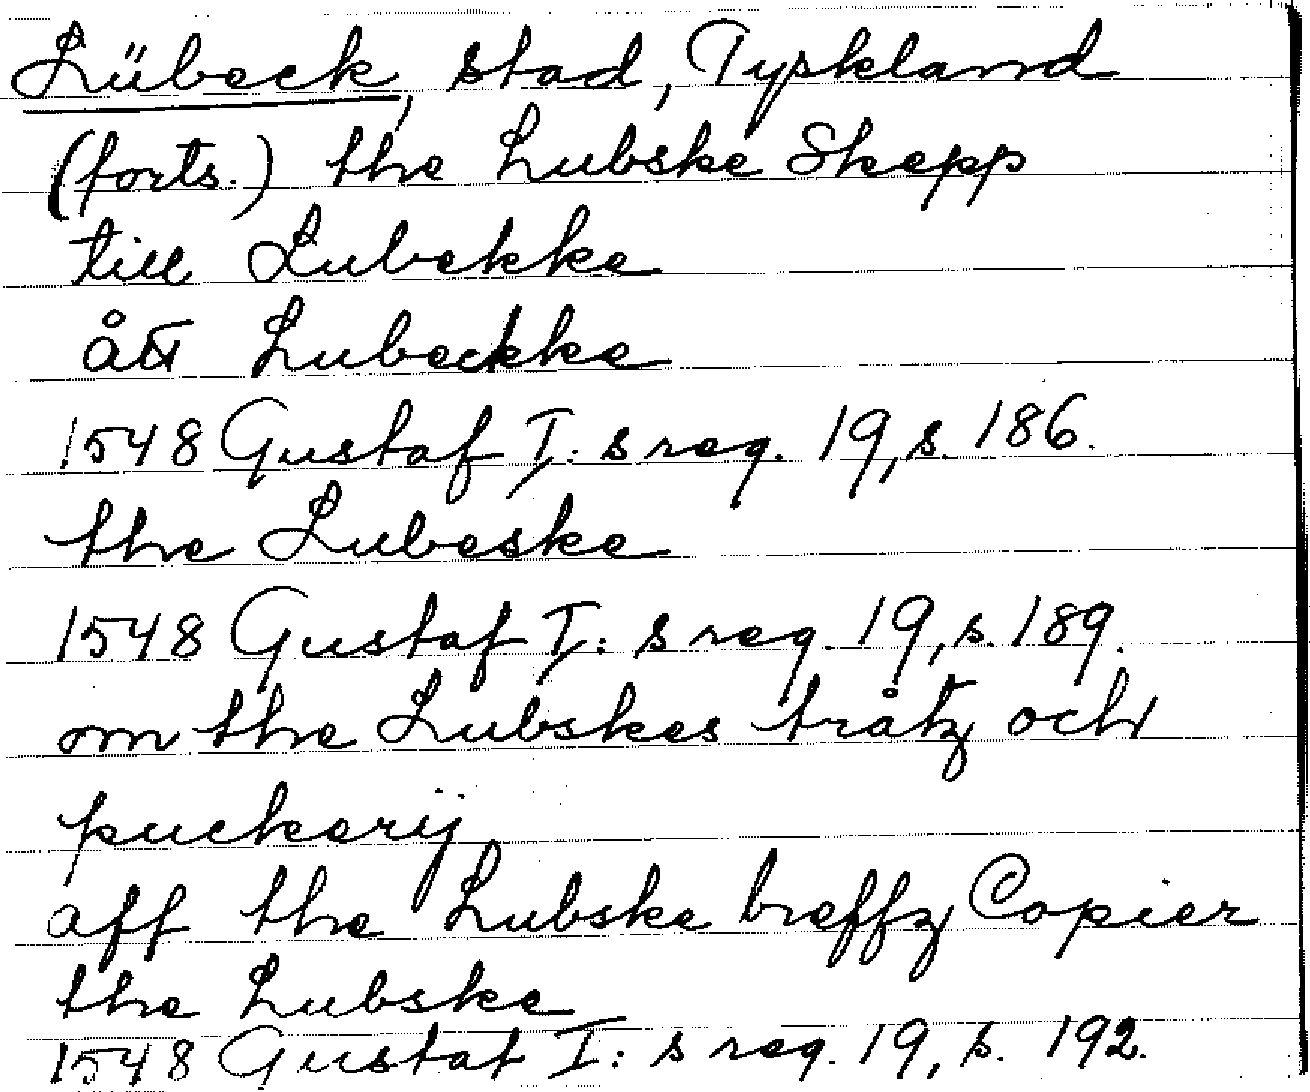 Lübeck, stad, Tyskland
(forts.) the Lubske Skepp
till Lubekke
ått Lubeckke
1548 Gustaf I: s reg. 19, s. 186.
the Lubeske
1548 Gustaf I: s reg. 19, s. 189.
om the Lubskes tråtz och
puckerij
aff the Lubske breffz Copier
the Lubske
1548 Gustaf I: s reg. 19, s. 192.